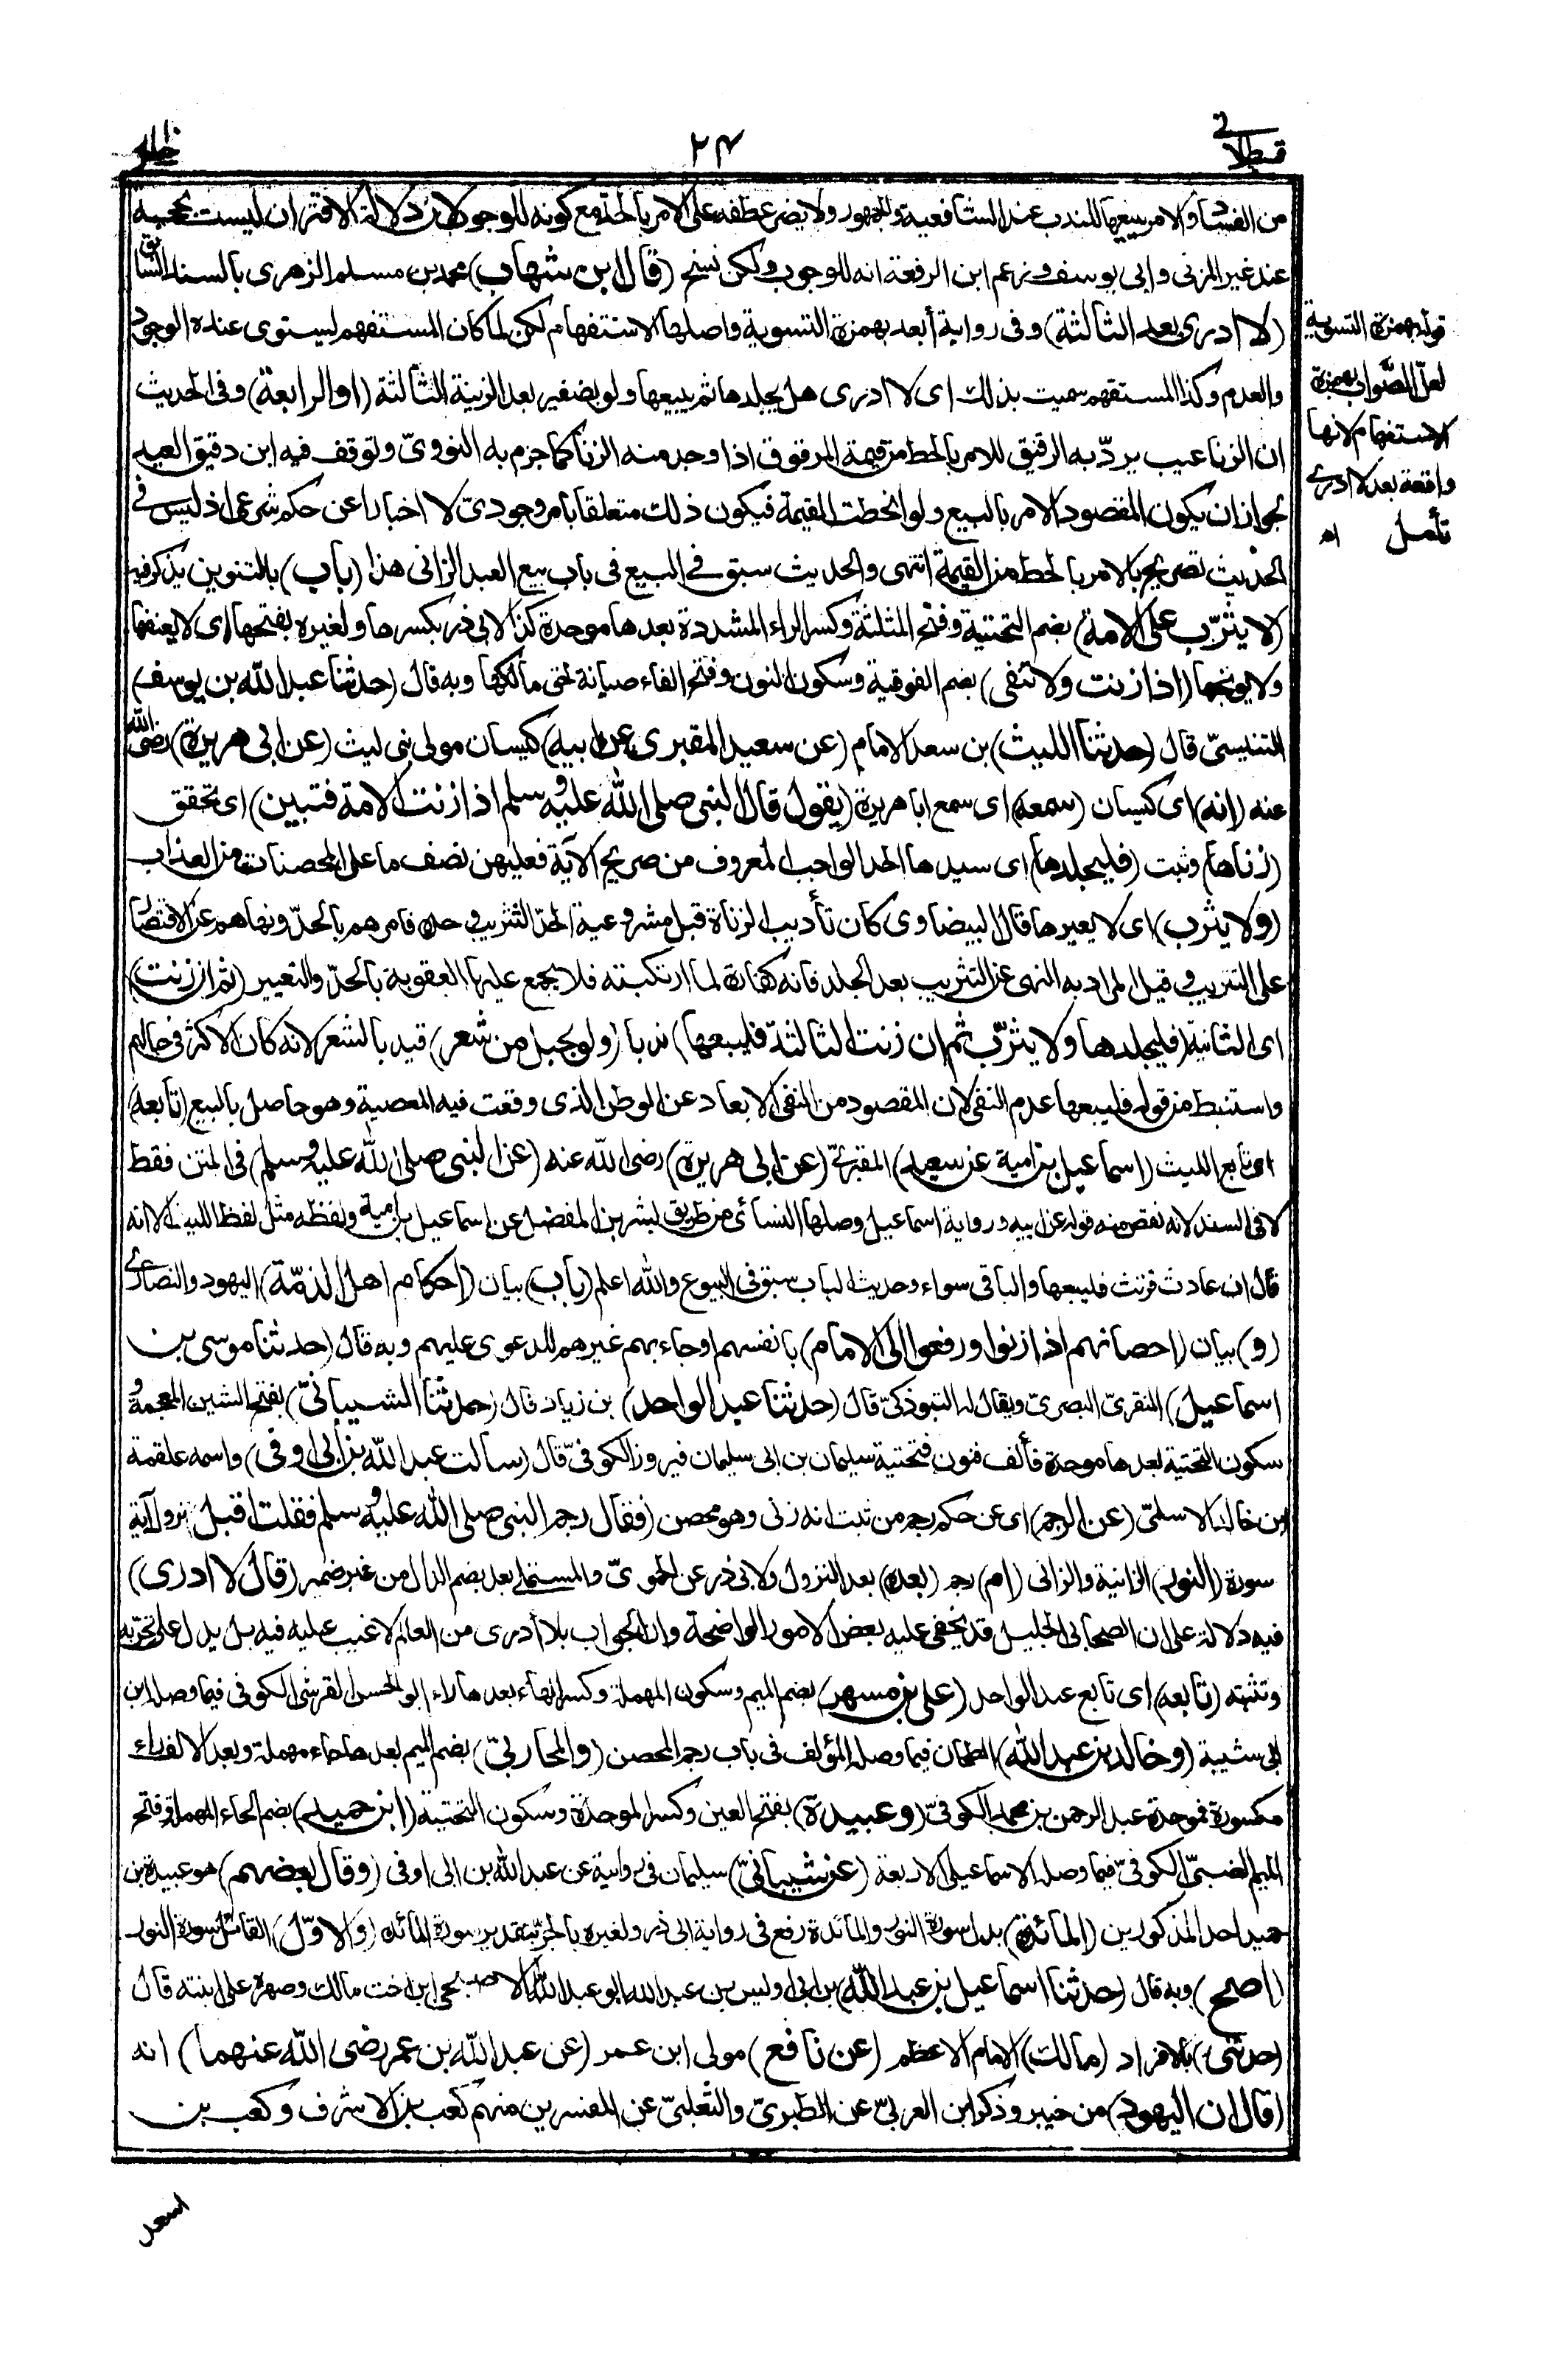 قسطلانی
٢٤
من الفساد والامر ببيعها للندب عند الشافعية والجمهور ولا يضر عطفه على الامر بالحد مع كونه للوجوب لان دلالة الاقتران ليست بحجة
عند غير المزنى وابى يوسف وزعم ابن الرفعة انه للوجوب ولكن نسخ (قال ابن شهاب) محمد بن مسلم الزهرى بالسند السابق
(لا ادرى بعد الثالثة) وفى رواية أبعد بهمزة التسوية واصلها الاستفهام لكن لما كان المستفهم يستوى عنده الوجود
والعدم وكذا المستفهم سميت بذلك اى لا ادرى هل يجلدها ثم يبيعها ولو بضفير بعد الزنية الثالثة (او الرابعة) وفى الحديث
ان الزنا عيب يردّ به الرقيق للامر بالحط من قيمة المرقوق اذا وجد منه الزنا كما جزم به النووىّ وتوقف فيه ابن دقيق العيد
لجواز ان يكون المقصود الامر بالبيع ولو انحطت القيمة فيكون ذلك متعلقا بامر وجودىّ لا اخبارا عن حكم شرعى اذ ليس فى
الحديث تصريح بالامر بالحط من القيمة انتهى والحديث سبق فى البيع فى باب بيع العبد الزانى هذا (باب) بالتنوين يذكر فيه
(لا يثرّب على الامة) بضم التحتية وفتح المثلثة وكسر الراء المشددة بعدها موحدة كذا لابى ذر بكسرها ولغيره بفتحها اى لا يعنفها
ولا يوبخها (اذا زنت ولا تنفى) بضم الفوقية وسكون النون وفتح الفاء صيانة لحق مالكها وبه قال (حدثنا عبد الله بن يوسف)
التنيسىّ قال (حدثنا الليث) بن سعد الامام (عن سعيد المقبرى عن ابيه) كيسان مولى بنى ليث (عن ابى هريرة) رضى الله
عنه (انه) اى كيسان (سمعه) اى سمع ابا هريرة (يقول قال النبى صلى الله عليه وسلم اذا زنت الامة فتبين) اى تحقق
(زناها) وثبت (فليجلدها) اى سيدها الحد الواجب المعروف من صريح الآية فعليهن نصف ما على المحصنات من العذاب
(ولا يثرب) اى لا يعيرها قال البيضاوى كان تأديب الزناة قبل مشروعية الحدّ التثريب وحده فامرهم بالحدّ ونهاهم عن الاقتصار
على التثريب وقيل المراد به النهى عن التثريب بعد الجلد فانه كفارة لما ارتكبته فلا يجمع عليها العقوبة بالحدّ والتعيير (ثم ان زنت)
اى الثانية (فليجلدها ولا يثرّب ثم ان زنت الثالثة فليبعها) ندبا (ولو بحبل من شعر) قيد بالشعر لانه كان الاكثر فى حبالهم
واستنبط من قوله فليبعها عدم النفى لان المقصود من النفى الابعاد عن الوطن الذى وقعت فيه المعصية وهو حاصل بالبيع (تابعه)
اى تابع الليث (اسماعيل بن امية عن سعيد) المقبرىّ (عن ابى هريرة) رضى الله عنه (عن النبى صلى الله عليه وسلم) فى المتن فقط
لا فى السند لانه نقص منه قوله عن ابيه ورواية اسماعيل وصلها النسائى من طريق بشر بن المفضل عن اسماعيل بن امية ولفظه مثل لفظ الليث الا انه
قال ان عادت فزنت فليبعها والباقى سواء وحديث الباب سبق فى البيوع والله اعلم (باب) بيان (احكام اهل الذمّة) اليهود والنصارى
(و) بيان (احصانهم اذا زنوا ورفعوا الى الامام) بانفسهم او جاء بهم غيرهم للدعوى عليهم وبه قال (حدثنا موسى بن
اسماعيل) المنقرىّ البصرىّ ويقال له التبوذكىّ قال (حدثنا عبد الواحد) بن زياد قال (حدثنا الشيبانىّ) بفتح الشين المعجمة و
سكون التحتية بعدها موحدة فألف فنون فتحتية سليمان بن ابى سليمان فيروز الكوفىّ قال (سالت عبد الله بن ابى اوفى) واسمه علقمة
بن خالد الاسلمىّ (عن الرجم) اى عن حكم رجم من ثبت انه زنى وهو محصن (فقال رجم النبى صلى الله عليه وسلم فقلت اقبل) نزول آية
سورة (النور) الزانية والزانى (ام) رجم (بعده) بعد النزول ولابى ذر عن الحموىّ والمستملى بعد بضم الدال من غير ضمير (قال لا ادرى)
فيه دلالة على ان الصحابى الجليل قد يخفى عليه بعض الامور الواضحة وان الجواب بلا أدرى من العالم لا عيب عليه فيه بل يدل على تحرّيه
وتثبته (تابعه) اى تابع عبد الواحد (على بن مسهر) بضم الميم وسكون المهملة وكسر الهاء بعدها راء ابو الحسن القرشى الكوفى فيما وصله ابن
ابى شيبة (وخالد بن عبد الله) الطحان فيما وصله المؤلف فى باب رجم المحصن (والمحاربىّ) بضم الميم بعدها حاء مهملة وبعد الالف راء
مكسورة فموحدة عبد الرحمن بن محمد الكوفىّ (وعبيدة) بفتح العين وكسر الموحدة وسكون التحتية (ابن حميد) بضم الحاء المهملة وفتح
الميم الضبىّ الكوفىّ فيما وصله الاسماعيلى الاربعة (عن الشيبانىّ) سليمان فى روايته عن عبد الله بن ابى اوفى (وقال بعضهم) هو عبيدة بن
حميد احد المذكورين (المائدة) بدل سورة النور والمائدة رفع فى رواية ابى ذر ولغيره بالجرّ بتقدير سورة المائده (والاوّل) القائل سورة النور
(اصح) وبه قال (حدثنا اسماعيل بن عبد الله) بن ابى اويس بن عبد الله ابو عبد الله الاصبحى ابن اخت مالك وصهره على ابنته قال
(حدثنى) بالافراد (مالك) الامام الاعظم (عن نافع) مولى ابن عمر (عن عبد الله بن عمر رضى الله عنهما) انه
(قال ان اليهود) من خيبر وذكر ابن العربىّ عن الطبرىّ والثعلبىّ عن المفسرين منهم كعب بن الاشرف وكعب بن
اسعد
قوله بهمزة التسوية
لعلّ الصّواب بهمزة
الاستفهام لانها
واقعة بعد لا ادرى
تأمل اه